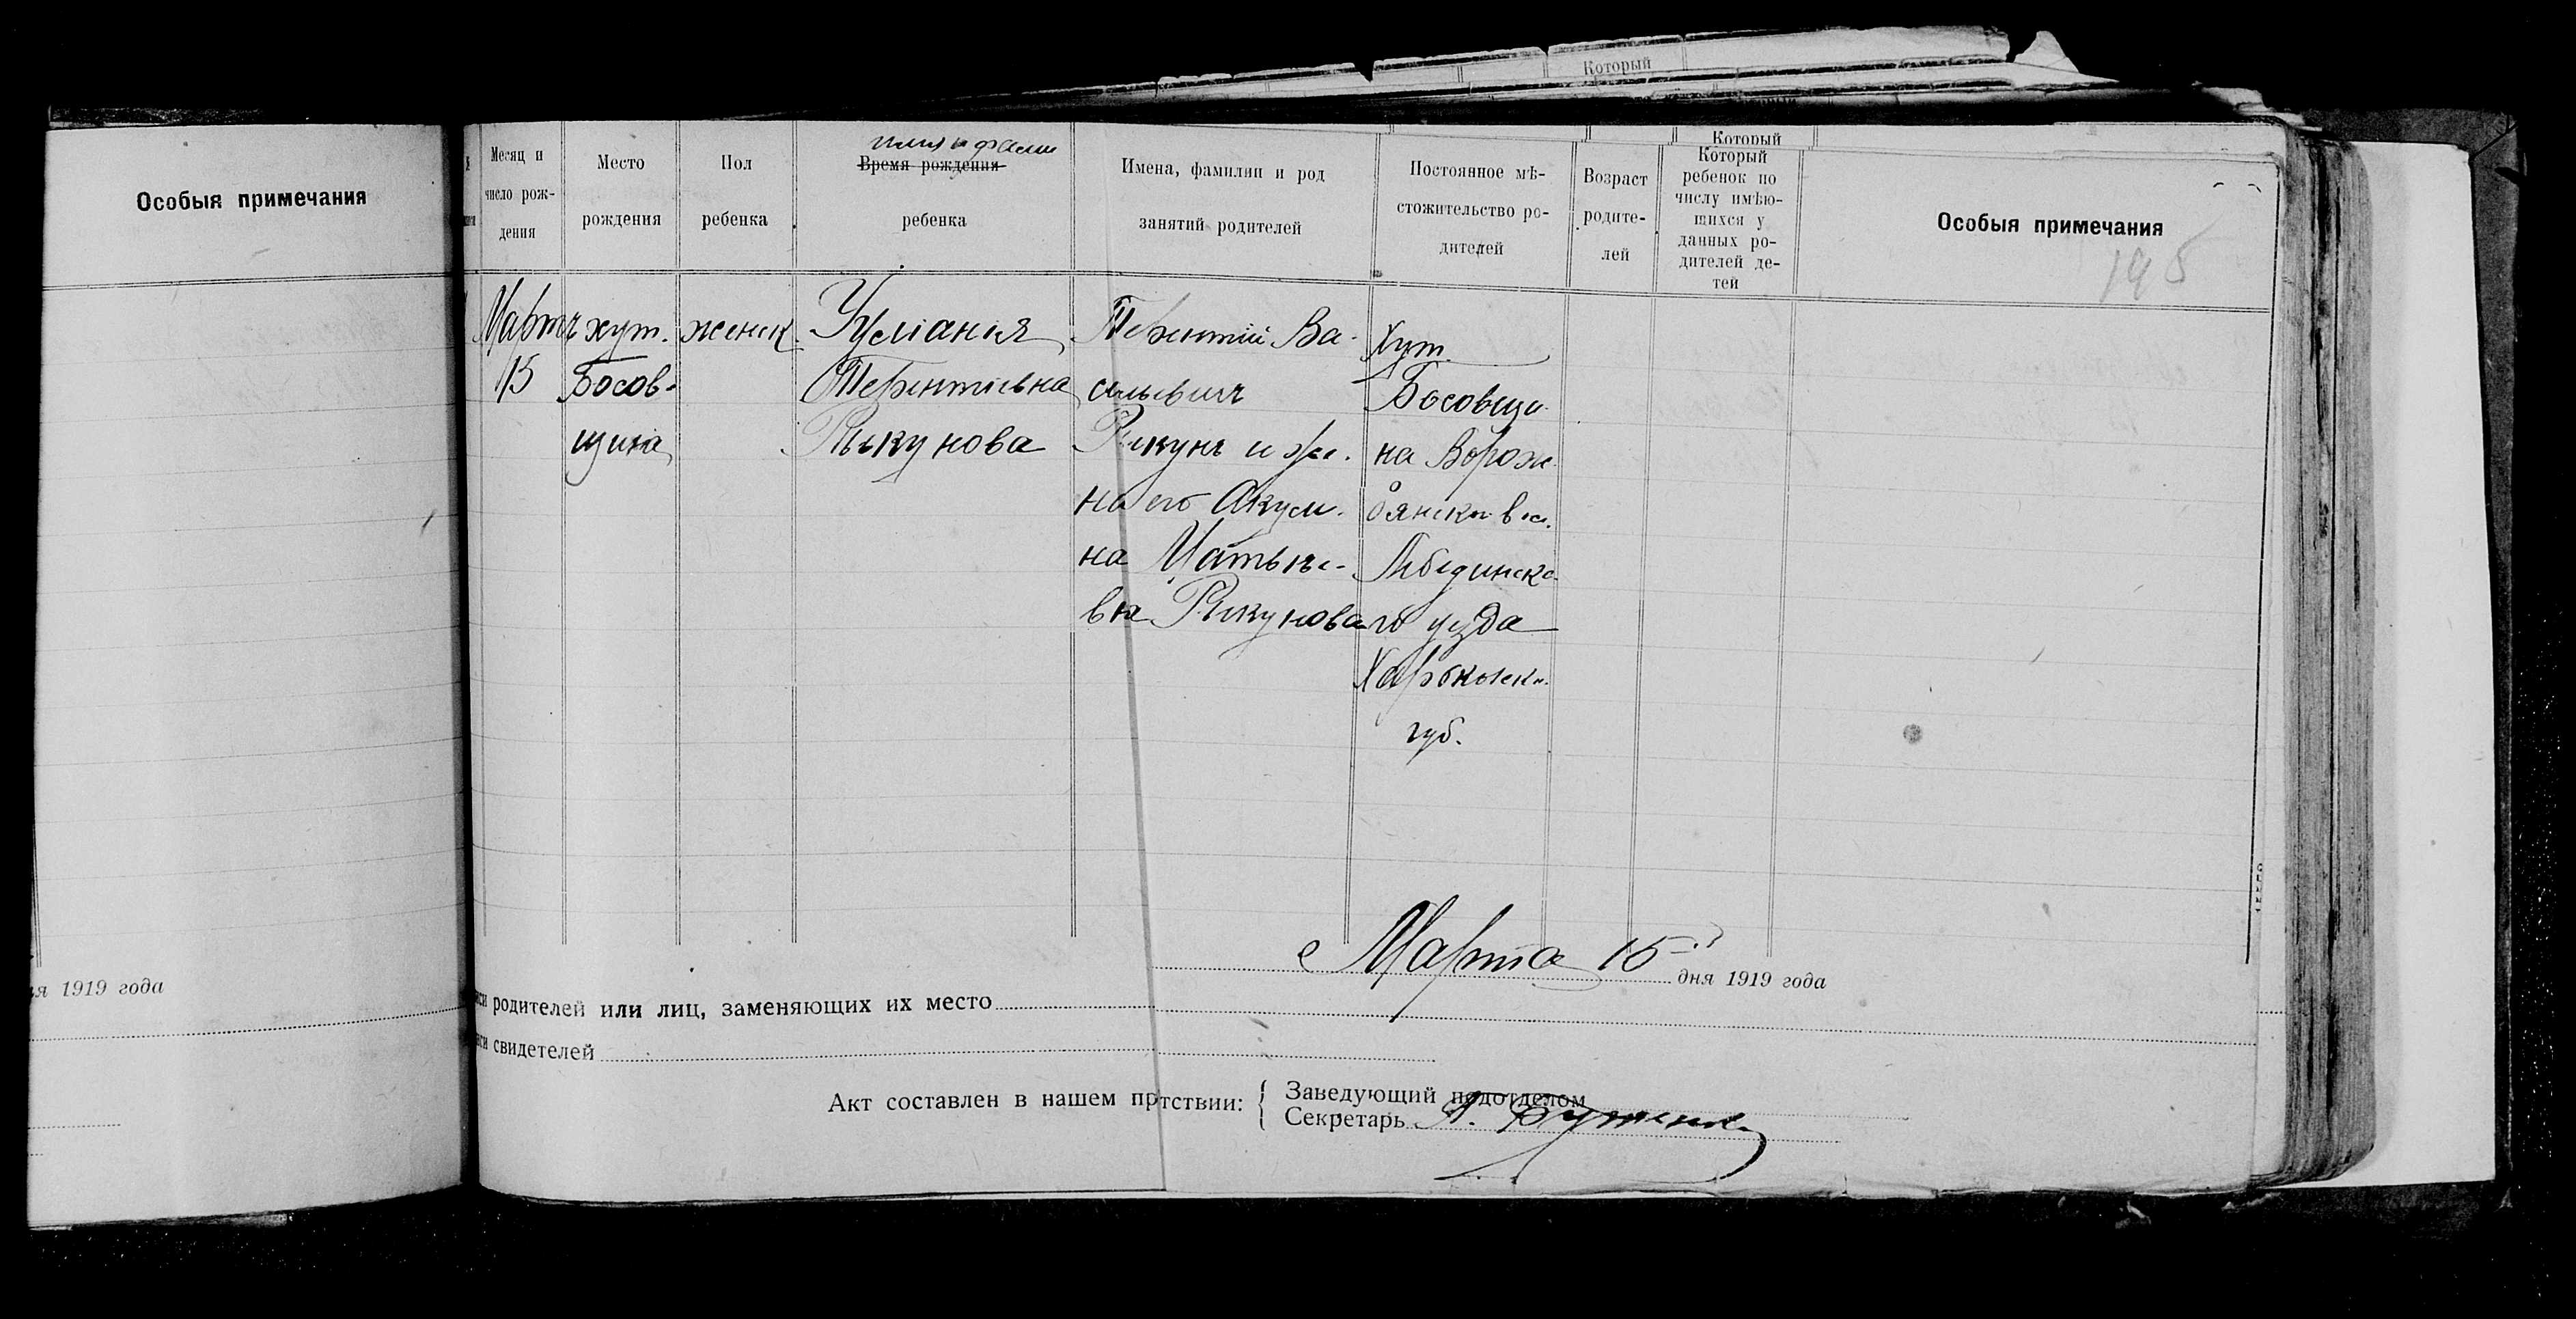 Который
Особыя примечания
Месяц и число рождения
Место рождения
Пол ребенка
имя и фами
Время рождения ребенка
Имена, фамилии и род занятий родителей
Постоянное мѣстожительство родителей
Возраст родителей
Который
Который ребенок по числу имѣющихся у данных родителей детей
Особыя примечания
195
Мартъ
15
хут.
Босов-
щина
женск.
Терентіевна
Рыкунова
Терентій Ва-
сильевичъ
Рикунъ и же-
на его Акули-
на Матвѣе-
вна Рикунова
Хут.
Босовщи-
на Ворож-
бянской вол.
Лебединска-
го уезда
Харьковск.
губ.
я 1919 года
Марта 15 дня 1919 года
родителей или лиц, заменяющих их место
свидетелей
Акт составлен в нашем пртствии:
Заведующий подотделом
Секретарь